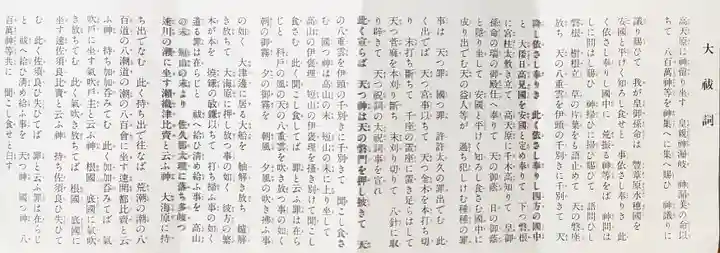 大祓詞
高天原に神留り坐す 皇親神漏岐 神漏美の命以
て 八百萬神等を神集へに集へ賜ひ 神議りに
議り賜ひて 我が皇御孫命は 豐葦原水穗國を
安國と平けく知ろし食せと 事依さし奉りき 此
く依さし奉りし國中に 荒振る神等をば 神問は
しに問はし賜ひ 神掃ひに掃ひ賜ひて 語問ひし
磐根 樹根立 草の片葉をも語止めて 天の磐座
放ち 天の八重雲を伊頭の千別きに千別きて 天
降し依さし奉りき 此く依さし奉りし四方の國中
と 大倭日高見國を安國と定め奉りて 下つ磐根
に宮柱太敷き立て 高天原に千木高知りて 皇御
孫命の瑞の御殿仕へ奉りて 天の御蔭 日の御蔭
と隱り坐して 安國と平けく知ろし食さむ國中に
成り出でむ天の益人等が 過ち犯しけむ種種の罪
事は 天つ罪 國つ罪 許許太久の罪出でむ 此
く出でば 天つ宮事以ちて 天つ金木を本打ち切
り 末打ち斷ちて 千座の置座に置き足らはして
天つ菅麻を本刈り斷ち 末刈り切りて 八針に取
り辟きて 天つ祝詞の太祝詞事を宣れ
此く宣らば 天つ神は天の磐門を押し披きて 天
の八重雲を伊頭の千別きに千別きて 聞こし食さ
む 國つ神は高山の末 短山の末に上り坐して
高山の伊褒理 短山の伊褒理を搔き別けて聞こし
食さむ 此く聞こし食してば 罪と云ふ罪は在ら
じと 科戸の風の天の八重雲を吹き放つ事の如く
朝の御霧 夕の御霧を 朝風 夕風の吹き拂ふ事
の如く 大津邊に居る大船を 舳解き放ち 艫解
き放ちて 大海原に押し放つ事の如く 彼方の繁
木が本を 燒鎌の敏鎌以ちて 打ち掃ふ事の如く
遺る罪は在らじと 祓へ給ひ淸め給ふ事を 高山
の末 短山の末より 佐久那太理に落ち多岐つ
速川の瀨に坐す瀨織津比賣と云ふ神 大海原に持
ち出でなむ 此く持ち出で往なば 荒潮の潮の八
百道の八潮道の潮の八百會に坐す速開都比賣と云
ふ神 持ち加加呑みてむ 此く加加呑みてば 氣
吹戸に坐す氣吹戸主と云ふ神 根國 底國に氣吹
き放ちてむ 此く氣吹き放ちてば 根國 底國に
坐す速佐須良比賣と云ふ神 持ち佐須良ひ失ひて
む 此く佐須良ひ失ひてば 罪と云ふ罪は在らじ
と 祓へ給ひ淸め給ふ事を 天つ神 國つ神 八
百萬神等共に 聞こし食せと白す